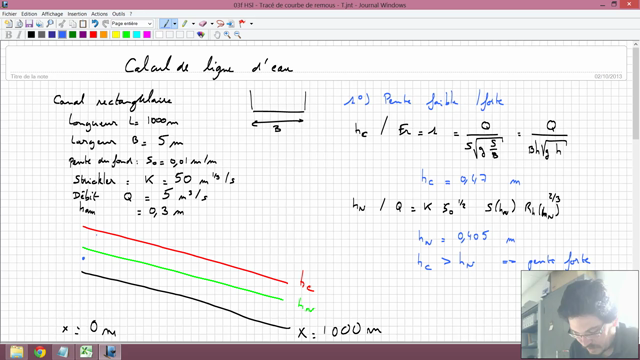 03f HSI - Tracé de courbe de remous - T.jnt - Journal Windows
Fichier Edition Affichage Insertion Actions Outils ?
Page entière
Titre de la note
02/10/2013
Calcul de ligne d'eau
Canal rectangulaire
Longueur L = 1000 m
Largeur B = 5 m
pente du fond : S0 = 0,01 m/m
Strickler : K = 50 m^1/3/s
Débit Q = 5 m³/s
ham = 0,3 m
B
1°) Pente faible / forte
hc / Fr = 1 = Q / (S√(g S/B)) = Q / (Bh√(g h))
hc = 0,47 m
hN / Q = K S0^1/2 S(hN) Rh(hN)^2/3
hN = 0,405 m
hc > hN ⇒ pente forte
hc
hN
x = 0 m
x = 1000 m